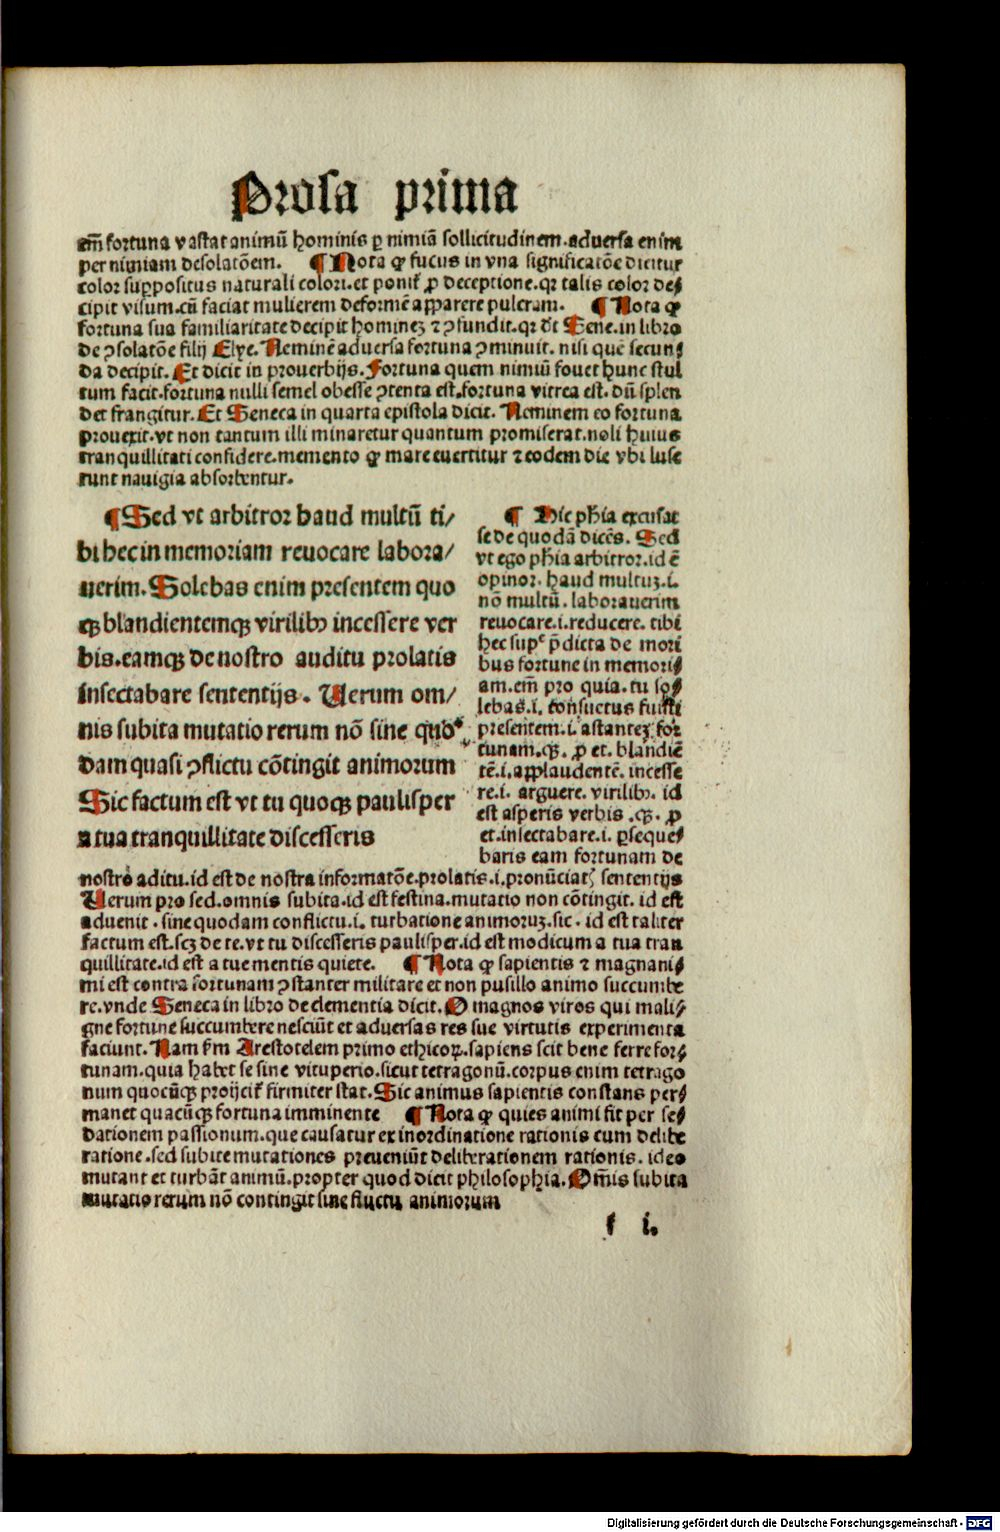 Prosa prima
em̄ fortuna vastat animū hominis ꝑ nimiā sollicitudinem.aduersa enim
per nimiam desolatōem. ¶ Nota ꝙ fucus in vna significatōe dicitur
color suppositus naturali colori.et ponit᷑ ꝓ deceptione.qꝛ talis color de⸗
cipit visum.cū faciat mulierem deformē apparere pulcram. ¶ Nota ꝙ
fortuna sua familiaritate decipit homineꝫ ⁊ ꝯfundit.qꝛ dt̄ Sene.in libro
de ꝯsolatōe filij Elxe.Neminē aduersa fortuna ꝯminuit. nisi quē secun⸗
da decipit.Et dicit in prouerbijs.Fortuna quem nimiū fouet hunc stul
tum facit.fortuna nulli semel obesse ꝯtenta est.fortuna vitrea est.dū splen
det frangitur.Et Seneca in quarta epistola dicit. Neminem eo fortuna
prouexit.vt non tantum illi minaretur quantum promiserat.noli huius
tranquillitati confidere.memento ꝙ mare euertitur ⁊ eodem die vbi luse
runt nauigia absorbentur.
¶Sed vt arbitror haud multū ti/
bi hec in memoriam reuocare labora/
uerim.Solebas enim presentem quo
qꝫ blandientemqꝫ virilibꝫ incessere ver
bis.eamqꝫ de nostro auditu prolatis
insectabare sententijs. Uerum om/
nis subita mutatio rerum nō sine quo
dam quasi ꝯflictu cōtingit animorum
Sic factum est vt tu quoqꝫ paulisper
a tua tranquillitate discesseris
¶ Hic phīa excusat
se de quodā dicēs. Sed
vt ego phīa arbitror.id ē
opinor. haud multuꝫ.i.
nō multū. laborauerim
reuocare.i.reducere. tibi
hec supᵉ p̄dicta de mori
bus fortune in memori⸗
am.em̄ pro quia.tu so⸗
lebas.i. consuetus fuisti
presentem.i. astanteꝫ for
tunam.qꝫ. ꝓ et. blandiē
tē.i.applaudentē. incesse
re.i. arguere. virilibꝫ. id
est asperis verbis .qꝫ. ꝓ
et.insectabare.i. ꝑseque⸗
baris eam fortunam de
nostro aditu.id est de nostra informatōe.prolatis.i.pronūciat᷑ sententijs
Uerum pro sed.omnis subita.id est festina.mutatio non cōtingit. id est
aduenit . sine quodam conflictu.i. turbatione animoruꝫ.sic . id est taliter
factum est.scꝫ de te.vt tu discesseris paulisper.id est modicum a tua tran
quillitate.id est a tue mentis quiete. ¶ Nota ꝙ sapientis ⁊ magnani⸗
mi est contra fortunam ꝯstanter militare et non pusillo animo succumbe
re.vnde Seneca in libro de clementia dicit.O magnos viros qui mali⸗
gne fortune succumbere nesciūt et aduersas res sue virtutis experimenta
faciunt.Nam ẜm Arestotelem primo ethicoꝝ.sapiens scit bene ferre for⸗
tunam.quia habet se sine vituperio.sicut tetragonū.corpus enim tetrago
num quocūqꝫ proijcit᷑ firmiter stat.Sic animus sapientis constans per
manet quacūqꝫ fortuna imminente ¶ Nota ꝙ quies animi fit per se⸗
dationem passionum.que causatur ex inordinatione rationis cum delibe
ratione.sed subite mutationes preueniūt deliberationem rationis. ideo
mutant et turbāt animū.propter quod dicit philosophia.Om̄is subita
mutatio rerum nō contingit sine fluctu animorum
f i.
Digitalisierung gefördert durch die Deutsche Forschungsgemeinschaft - DFG